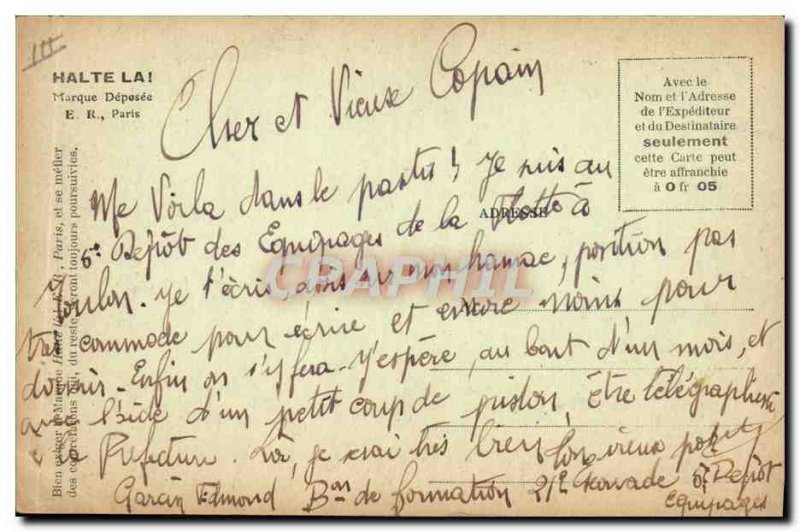 HALTE LA!
Marque Déposée
E. R., Paris
Avec le
Nom et l'Adresse
de l'Expéditeur
et du Destinataire
seulement
cette Carte peut
être affranchie
à 0 fr 05
Bien exiger la Marque Halte là! E. R., Paris, et se méfier
des contrefaçons qui, du reste seront toujours poursuivies.
ADRESSE
CPRAPHIL
Cher et Vieux Copain
Me Voila dans le pastis! Je suis au
5e Depôt des Equipages de la Flotte à
Toulon. Je t'écris dans mon hamac, position pas
très commode pour écrire et encore moins pour
dormir. Enfin on s'y fera. J'espère, au bout d'un mois, et
avec l'aide d'un petit coup de piston, être télégraphiste
Prefecture. Là, je serai très bien Ton vieux pote
Garcin Edmond Bon de formation 21e Escouade 5e Depôt
Equipages